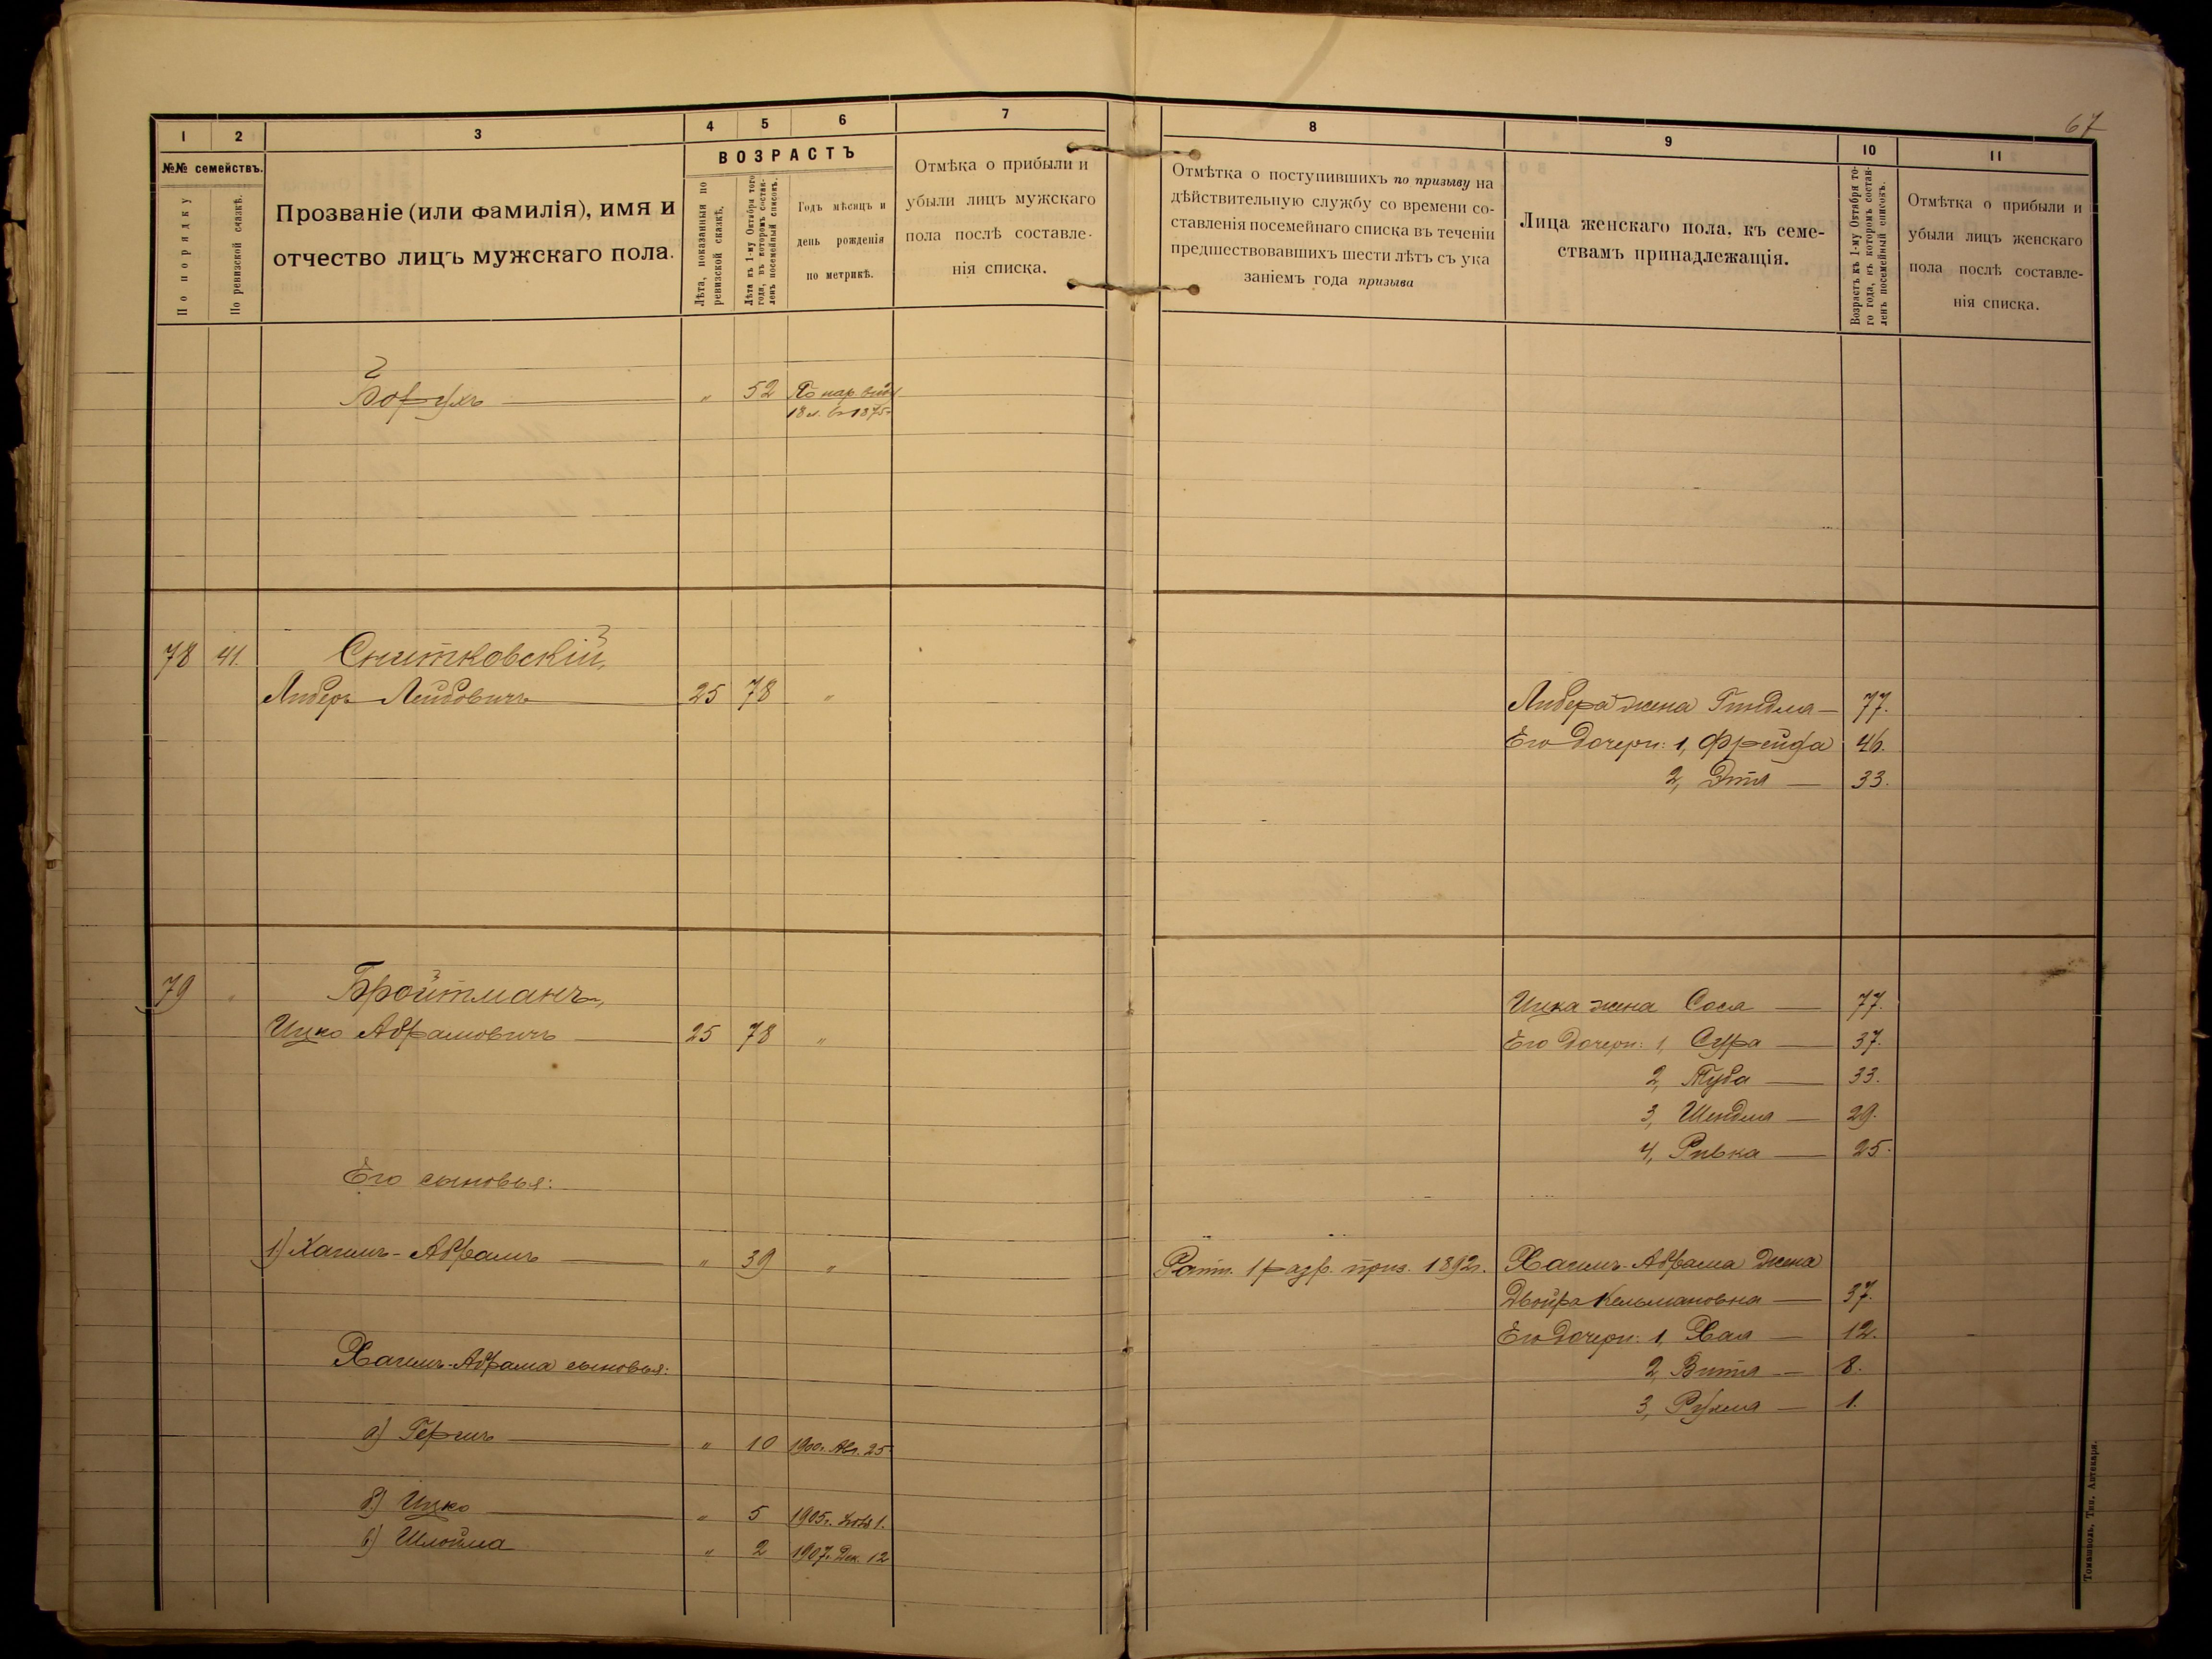 67
1 2 3 4 5 6 7
№№ семействъ.
По порядку
По ревизской сказкѣ.
Прозваніе (или фамилія), имя и
отчество лицъ мужскаго пола.
ВОЗРАСТЪ
Лѣта, показанныя по
ревизской сказкѣ.
Лѣта къ 1-му Октября того
года, въ которомъ состав-
ленъ посемейный списокъ.
Годъ мѣсяцъ и
день рожденія
по метрикѣ.
Отмѣка о прибыли и
убыли лицъ мужскаго
пола послѣ составле-
нія списка.
8 9 10 11
Отмѣтка о поступившихъ по призыву на
дѣйствительную службу со времени со-
ставленія посемейнаго списка въ теченіи
предшествовавшихъ шести лѣтъ съ ука
заніемъ года призыва
Лица женскаго пола, къ семе-
ствамъ принадлежащія.
Возрастъ къ 1-му Октября то-
го года, въ которомъ состав-
ленъ посемейный списокъ.
Отмѣтка о прибыли и
убыли лицъ женскаго
пола послѣ составле-
нія списка.
Борухъ " 52 По нар. виду
18 л. въ 1875г.
78 41. Снитковскій,
Либеръ Лейбовичъ 25 78 "
Либера жена Гиндля 77.
Его дочери: 1, Фрейда 46.
2, Этя 33.
79 " Бройтманъ,
Ицко Абрамовичъ 25 78 "
Ицка жена Сося 77.
Его дочери: 1, Сура 37.
2, Туба 33.
3, Шендля 29.
4, Ривка 25.
Его сыновья:
1) Хаимъ-Абрамъ " 39 "
Ратн. 1 разр. приз. 1892г.
Хаимъ-Абрама жена
Двойра Кельмановна 37.
Его дочери: 1, Хая 12.
2, Витя 8.
3, Рухля 1.
Хаимъ-Абрама сыновья:
а) Гершъ " 10 1900г. Авг. 25
б) Ицко " 5 1905г. 1.
в) Шлойма " 2 1907г. Дек. 12
Томашполь, Тип. Аптекаря.